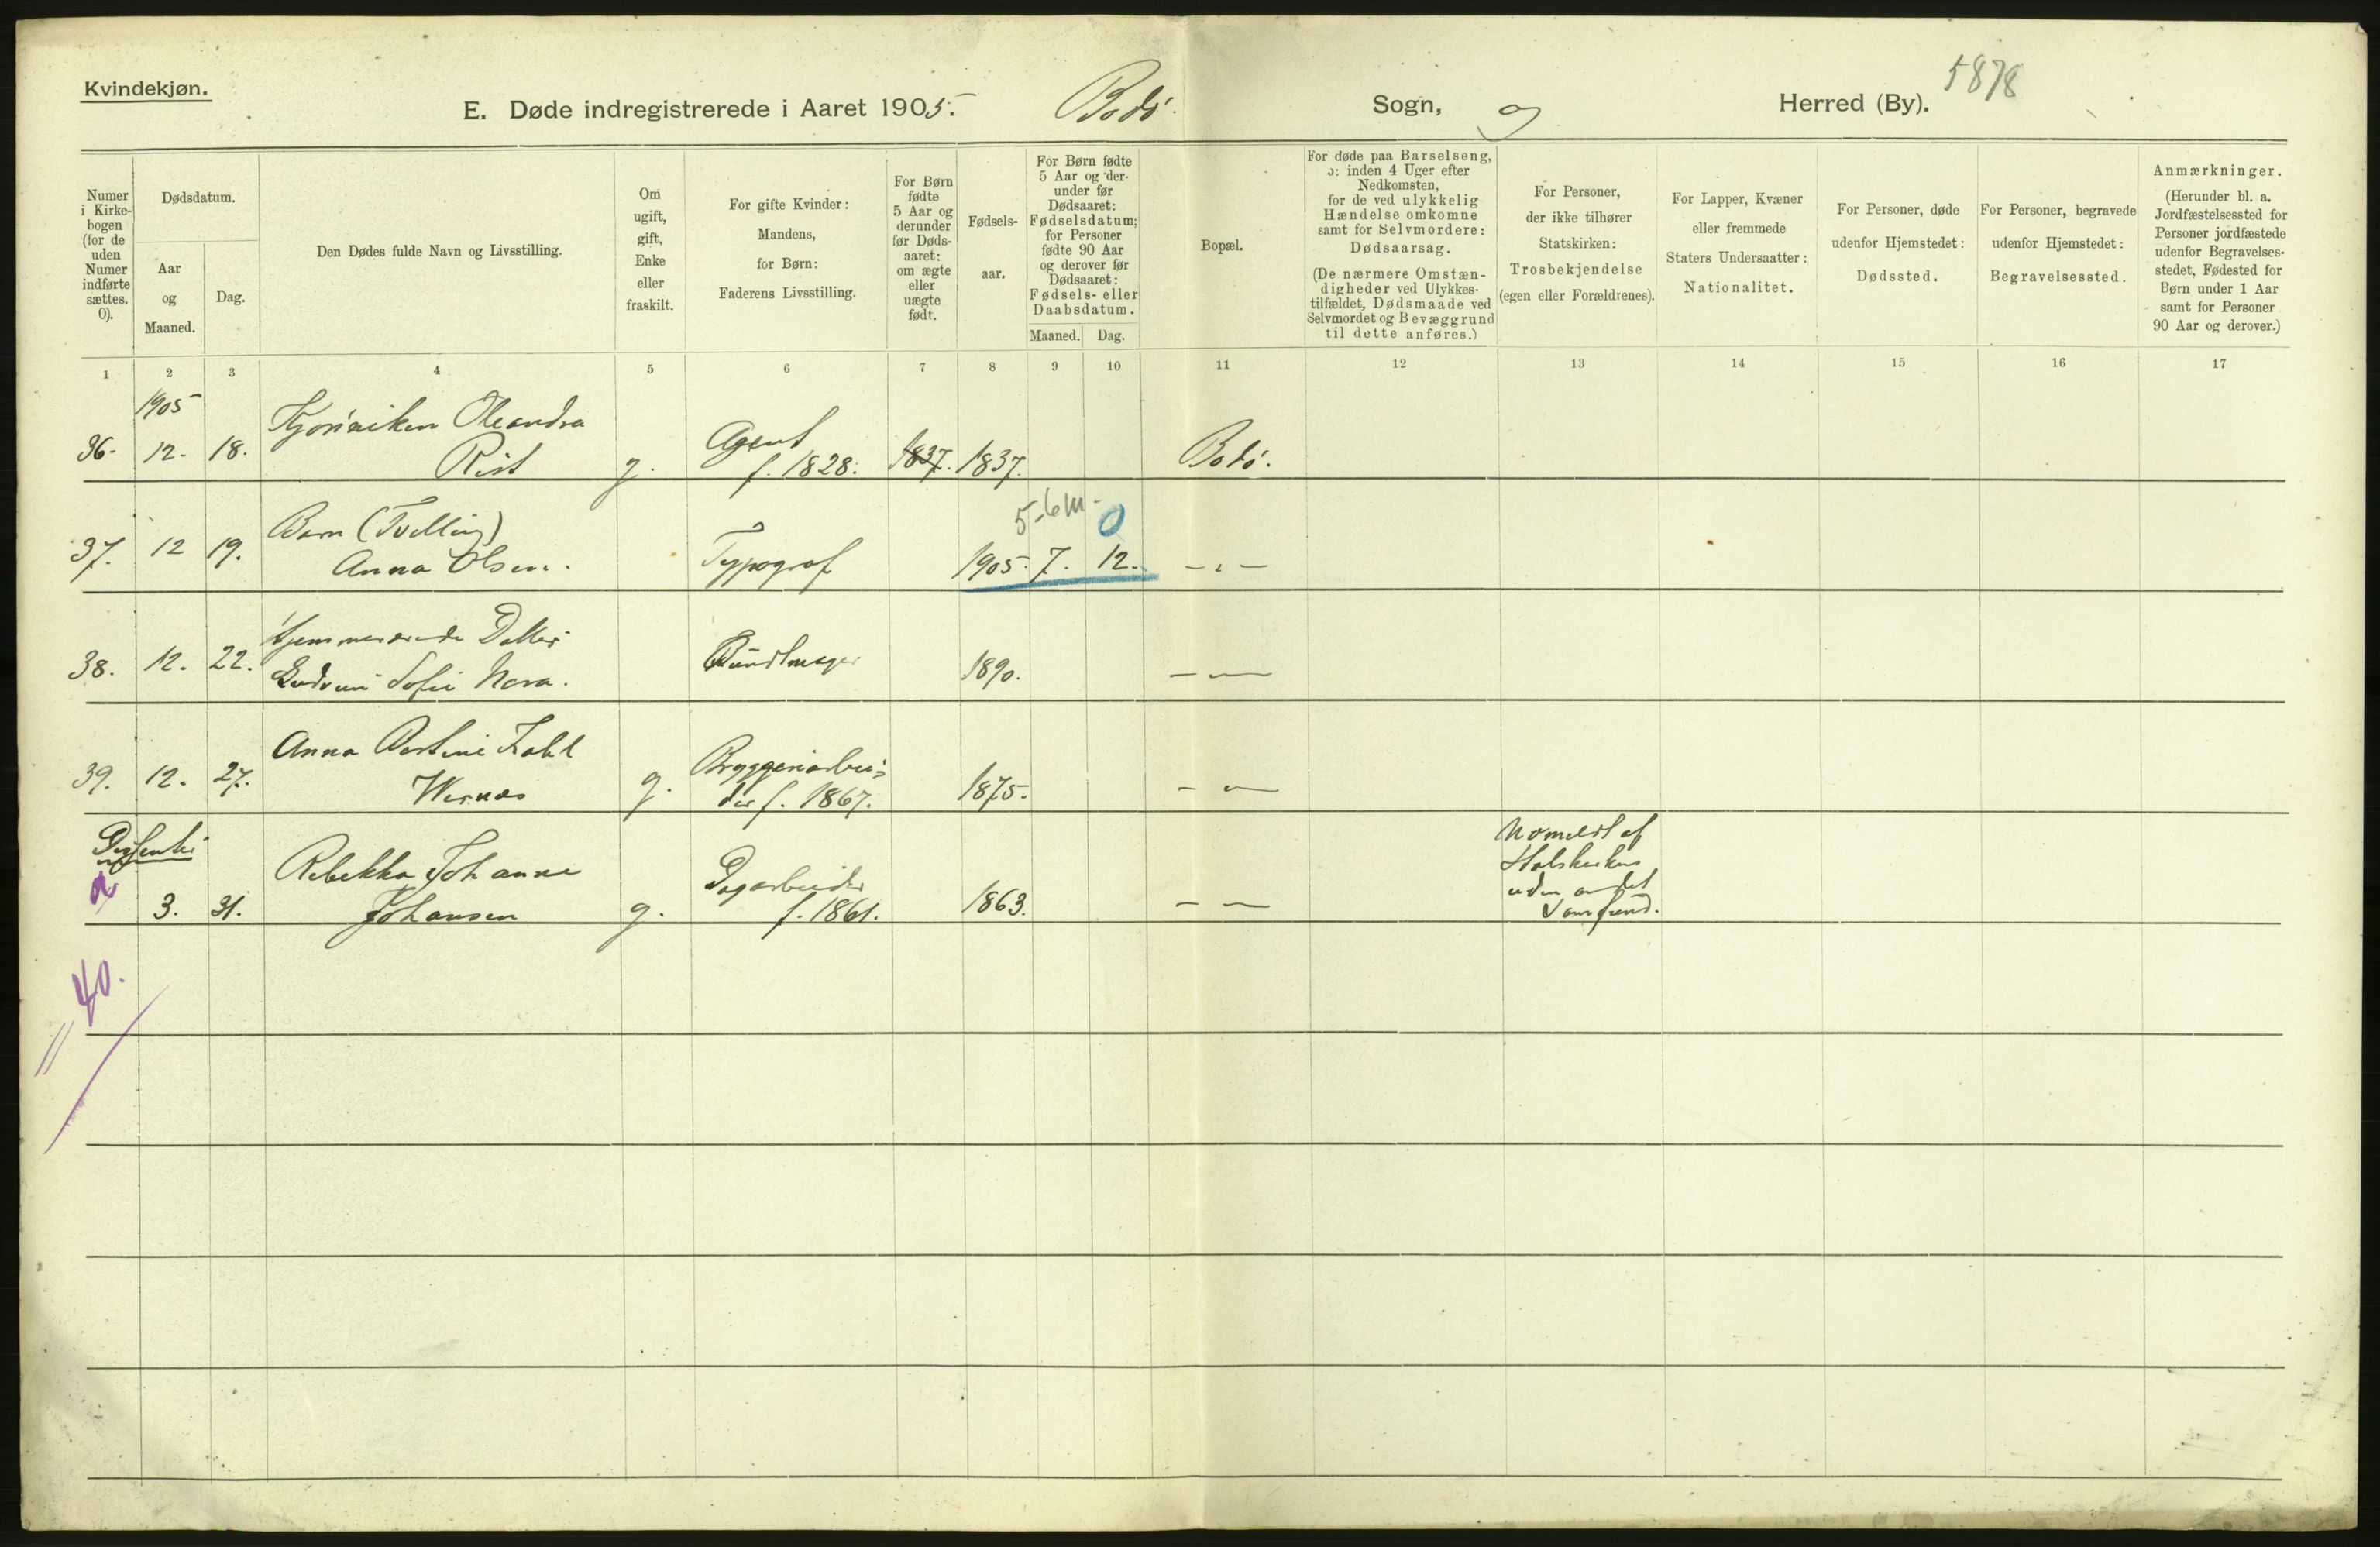 Kvindekjøn.
E. Døde indregistrerede i Aaret 1905. Bodø Sogn, og Herred (By). 5878
Numer i Kirke- bogen (for de uden Numer indførte sættes. 0).
Dødsdatum.
Aar og Maaned.
Dag.
Den Dødes fulde Navn og Livsstilling.
Om ugift, gift, Enke eller fraskilt.
For gifte Kvinder: Mandens, for Børn: Faderens Livsstilling.
For Børn fødte 5 Aar og derunder før Døds- aaret: om ægte eller uægte født.
Fødsels- aar.
For Børn fødte 5 Aar og der- under før Dødsaaret: Fødselsdatum; for Personer fødte 90 Aar og derover før Dødsaaret: Fødsels- eller Daabsdatum.
Maaned. Dag.
Bopæl.
For døde paa Barselseng, ɔ: inden 4 Uger efter Nedkomsten, for de ved ulykkelig Hændelse omkomne samt for Selvmordere: Dødsaarsag.
(De nærmere Omstæn- digheder ved Ulykkes- tilfældet, Dødsmaade ved Selvmordet og Bevæggrund til dette anføres.)
For Personer, der ikke tilhører Statskirken: Trosbekjendelse (egen eller Forældrenes).
For Lapper, Kvæner eller fremmede Staters Undersaatter: Nationalitet.
For Personer, døde udenfor Hjemstedet: Dødssted.
For Personer, begravede udenfor Hjemstedet: Begravelsessted.
Anmærkninger.
(Herunder bl. a. Jordfæstelsessted for Personer jordfæstede udenfor Begravelses- stedet, Fødested for Børn under 1 Aar samt for Personer 90 Aar og derover.)
1 2 3 4 5 6 7 8 9 10 11 12 13 14 15 16 17
1905
Oleandra
36. 12. 18. Rist g. Agent f. 1828. 1837. 1837. Bodø.
5-6 m 0
Barn (Tvilling)
37. 12 19. Anna Olsen. Typograf 1905. 7. 12. - " -
Hjemmeværende Datter
38. 12. 22. Gudrun Sofie Nora. Buntmager 1890. - " -
Anna
39. 12. 27. g. Bryggeriarbei-
der f. 1867. 1875. - " -
Dissenter
Rebekka Johanne Dagarbeider
2 3. 31. Johansen g. f. 1861. 1863. - " -
Udmeldt af
Statskirken
uden andet
Samfund.
= 40.